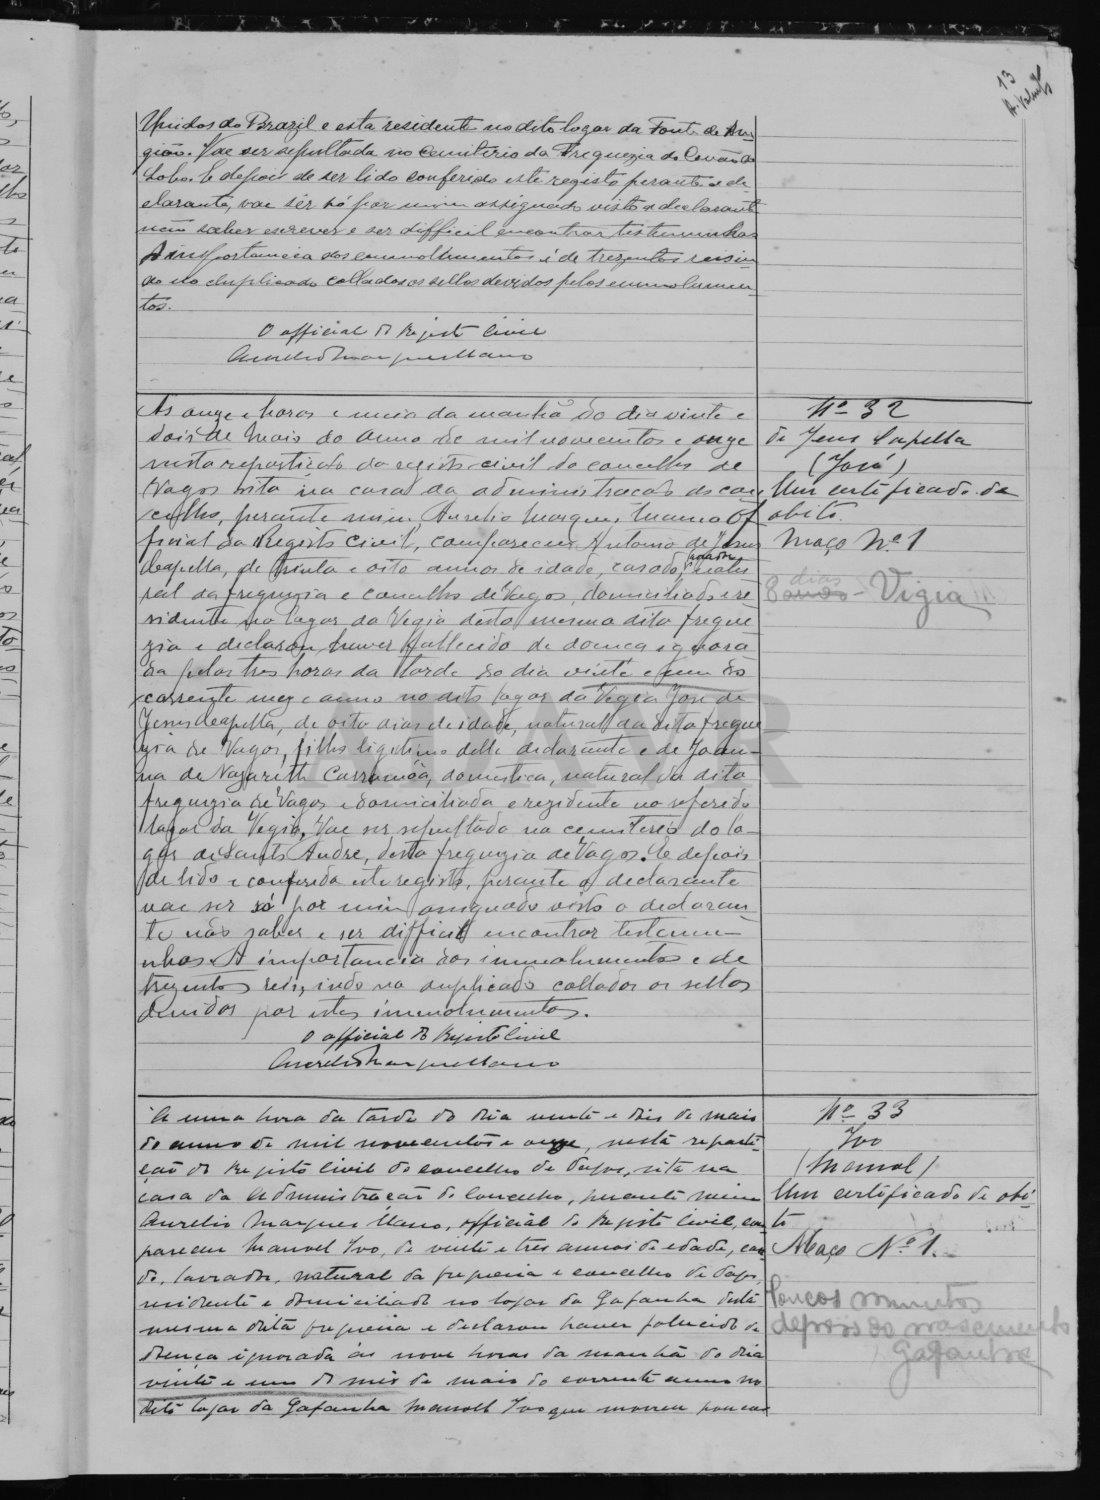 13
Unidos do Brazil e esta residente no dito logar da Fonte de An-
gião. Vae ser sepultada no cemiterio da Freguezia de Covão do
Lobo. E depois de ser lido conferido este registo perante o de-
clarante, vae ser só por mim assignado visto o declarante
não saber escrever e ser difficil encontrar testemunhas
A importancia dos emmolumentos é de trezentos reis in-
do no duplicado collados os sellos devidos pelos emmolumen-
tos.
O official do Registo Civil
Aurelio Marques Mano
As onze horas e meia da manhã do dia vinte e
dois de Maio do anno de mil novecentos e onze
nesta repartição do registo civil do concelho de
Vagos sita na casa da administração do con-
celho, perante mim, Aurelio Marques Mano Of
ficial do Registo Civil, compareceu Antonio de Jesus
Capella, de trinta e oito annos de idade, casado, natu
ral da freguezia e concelho de Vagos, domiciliado e re
sidente no logar da Vegia desta mesma dita fregue
zia e declarou haver fallecido de doença ignora
da pelas tres horas da tarde do dia vinte e um do
corrente mez e anno no dito logar da Vegia José de
Jesus Capella, de oito dias de idade, natural da dita fregue
zia de Vagos, filho ligitimo delle declarante e de Joan-
na de Nazareth Carrancôa, domestica, natural da dita
freguezia de Vagos e domiciliada e rezidente no referido
logar da Vegia, Vae ser sepultado no cemiterio do lo-
gar de Santo André, desta freguezia de Vagos. E depois
de lido e conferido este registo, perante o declarante
vae ser só por mim assignado visto o declaran
te não saber e ser difficil encontrar testemu-
nhas. A importancia dos immolumentos e de
trezentos reis, indo no duplicado collados os sellos
devidos por estes immolumentos.
O official do Registo Civil
Aurelio Marques Mano
Nº 32
de Jesus Capella
(José)
Um certificado de
obito.
Maço Nº 1
8 dias - Vigia
A uma hora da tarde do dia vinte e dois de maio
do anno de mil novecentos e onze, nesta reparti-
ção do Registo Civil do concelho de Vagos, sita na
casa da Administração do Concelho, perante mim
Aurelio Marques Mano, official do Registo Civil, com
pareceu Manoel Ivo, de vinte e tres annos de edade, casa
do, lavrador, natural da freguesia e concelho de Vagos,
residente e domiciliado no logar da Gafanha desta
mesma dita freguesia e declarou haver fallecido de
doença ignorada ás nove horas da manhã do dia
vinte e um do mês de maio do corrente anno no
dito logar da Gafanha Manoel Ivo que morreu poucos
Nº 33
Ivo
(Manoel)
Um certificado de obi-
to
Maço Nº 1.
Poucos minutos
depois do nascimento
Gafanha